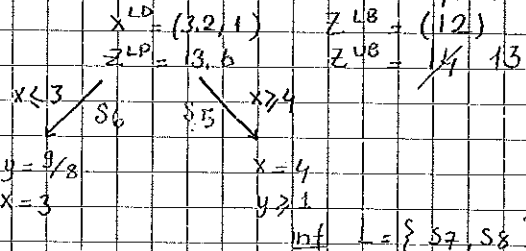 x^LD = (3.2, 1) Z^LB = (12)
Z^LP = 13.6 Z^UB = 14 13
x ≤ 3 S6 S5 x ≥ 4
y = 9/8 x = 4
x = 3 y ≥ 1
inf L = { S7, S8